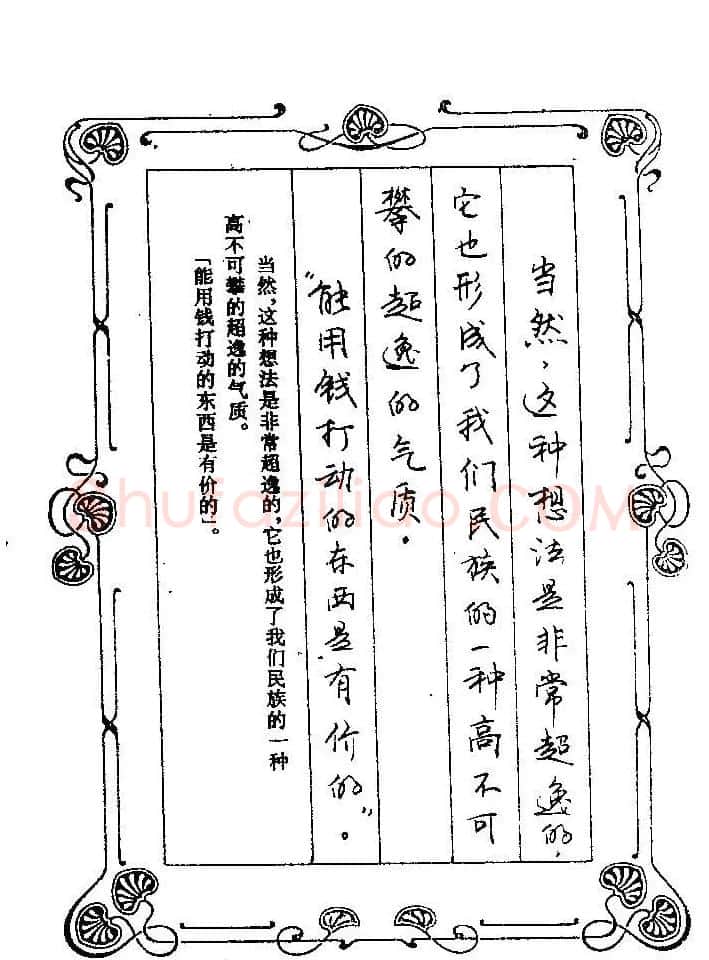 当然,这种想法是非常超逸的,
它也形成了我们民族的一种高不可
攀的超逸的气质.
“能用钱打动的东西是有价的”。
当然,这种想法是非常超逸的,它也形成了我们民族的一种
高不可攀的超逸的气质。
「能用钱打动的东西是有价的」。
Shufaziliao.COM